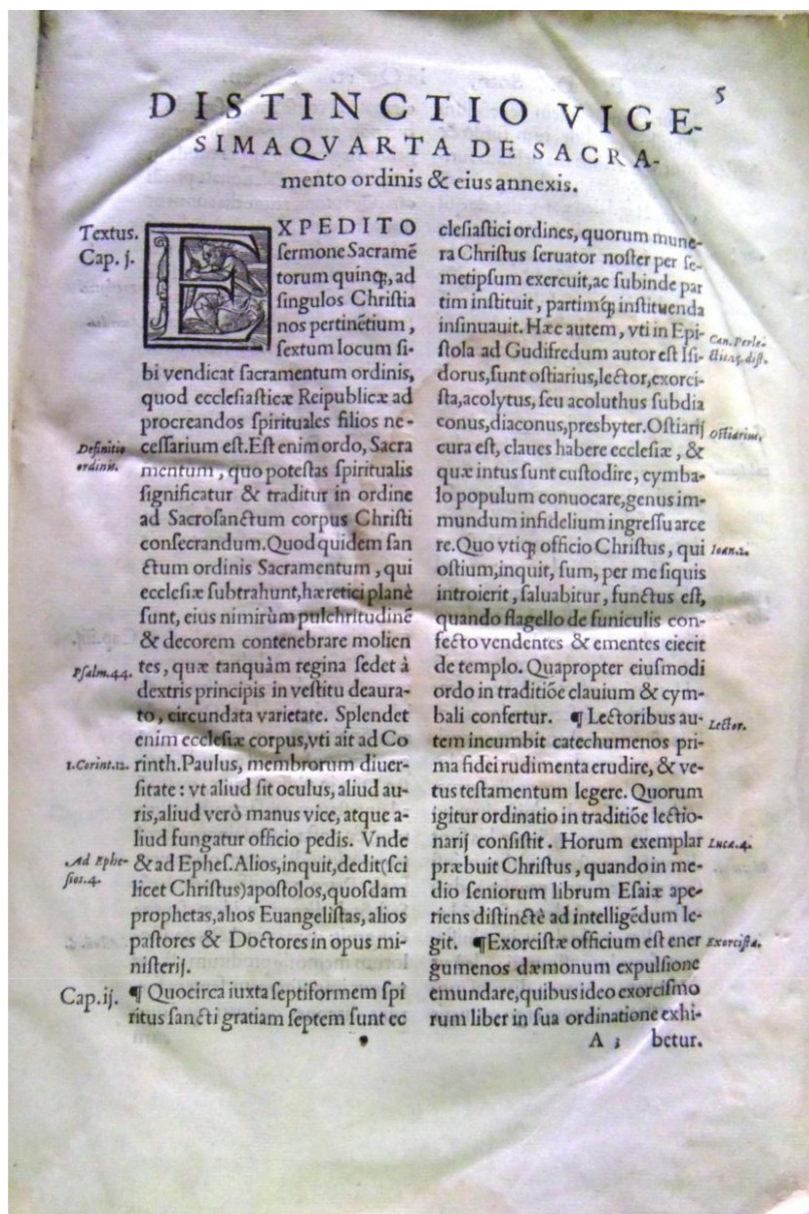 5
DISTINCTIO VIGE-
SIMAQVARTA DE SACRA-
mento ordinis & eius annexis.
Textus.
Cap. j.
EXPEDITO
ſermone Sacramẽ
torum quinqꝫ, ad
ſingulos Chriſtia
nos pertinẽtium,
ſextum locum ſi-
bi vendicat ſacramentum ordinis,
quod eccleſiaſticæ Reipublicæ ad
procreandos ſpirituales filios ne-
Definitio
ordinis.
ceſſarium eſt. Eſt enim ordo, Sacra
mentum, quo poteſtas ſpiritualis
ſignificatur & traditur in ordine
ad Sacroſanctum corpus Chriſti
conſecrandum. Quod quidem ſan
ctum ordinis Sacramentum, qui
eccleſiæ ſubtrahunt, hæretici planè
ſunt, eius nimirùm pulchritudinẽ
& decorem contenebrare molien
Pſalm.44.
tes, quæ tanquàm regina ſedet à
dextris principis in veſtitu deaura-
to, circundata varietate. Splendet
enim eccleſiæ corpus, vti ait ad Co
1.Corint.12.
rinth. Paulus, membrorum diuer-
ſitate: vt aliud ſit oculus, aliud au-
ris, aliud verò manus vice, atque a-
liud fungatur officio pedis. Vnde
Ad Ephe-
ſios.4.
& ad Epheſ. Alios, inquit, dedit (ſci
licet Chriſtus) apoſtolos, quoſdam
prophetas, alios Euangeliſtas, alios
paſtores & Doctores in opus mi-
niſterij.
Cap. ij.
¶ Quocirca iuxta ſeptiformem ſpi
ritus ſancti gratiam ſeptem ſunt ec
cleſiaſtici ordines, quorum mune-
ra Chriſtus ſeruator noſter per ſe-
metipſum exercuit, ac ſubinde par
tim inſtituit, partimqꝫ inſtituenda
inſinuauit. Hæc autem, vti in Epi-
Can. Perle-
ctis.25.diſt.
ſtola ad Gudifredum autor eſt Iſi-
dorus, ſunt oſtiarius, lector, exorci-
ſta, acolytus, ſeu acoluthus ſubdia
conus, diaconus, presbyter. Oſtiarij
Oſtiarius.
cura eſt, claues habere eccleſiæ, &
quæ intus ſunt cuſtodire, cymba-
lo populum conuocare, genus im-
mundum infidelium ingreſſu arce
re. Quo vtiqꝫ officio Chriſtus, qui
Ioan.2.
oſtium, inquit, ſum, per me ſiquis
introierit, ſaluabitur, functus eſt,
quando flagello de funiculis con-
fecto vendentes & ementes eiecit
de templo. Quapropter eiuſmodi
ordo in traditiõe clauium & cym-
bali confertur. ¶ Lectoribus au-
Lector.
tem incumbit catechumenos pri-
ma fidei rudimenta erudire, & ve-
tus teſtamentum legere. Quorum
igitur ordinatio in traditiõe lectio-
narij conſiſtit. Horum exemplar
Luca.4.
præbuit Chriſtus, quando in me-
dio ſeniorum librum Eſaiæ ape-
riens diſtinctè ad intelligẽdum le-
git. ¶Exorciſtæ officium eſt ener
Exorciſta.
gumenos dæmonum expulſione
emundare, quibus ideo exorciſmo
rum liber in ſua ordinatione exhi-
A 3 betur.